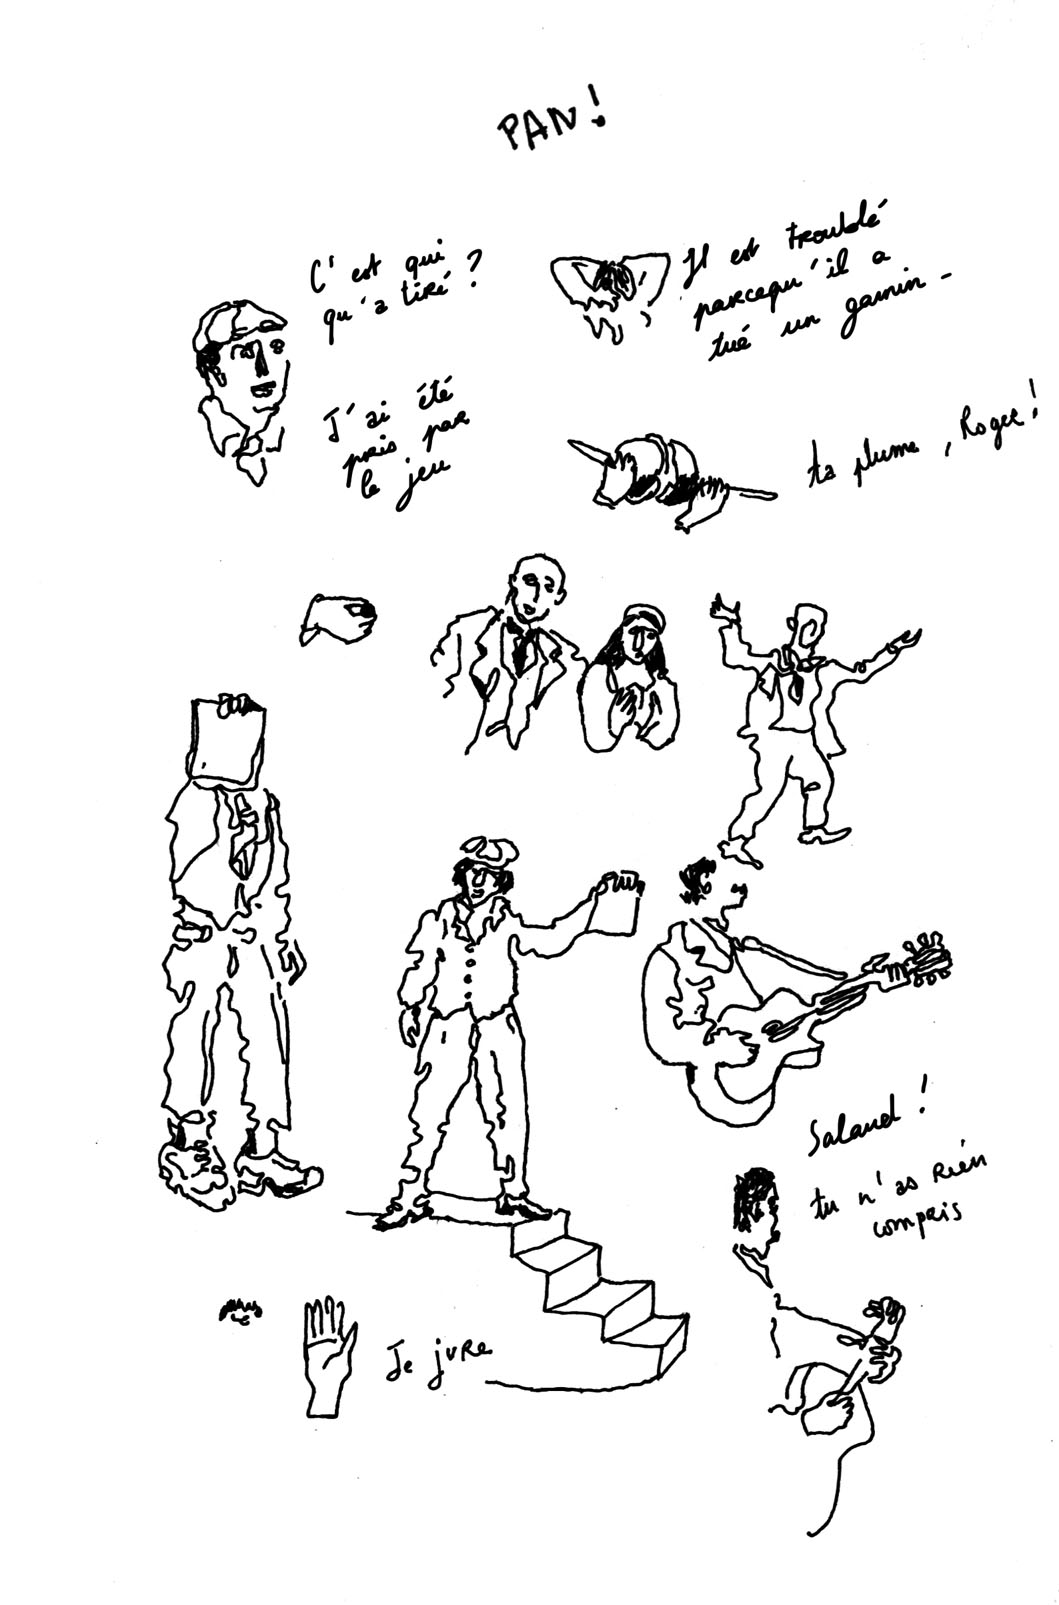 PAN!
C'est qui
qu'a tiré ?
J'ai été
pris par
le jeu
Il est troublé
parcequ'il a
tué un gamin -
ta plume, Roger !
Salaud !
tu n'as rien
compris
Je jure